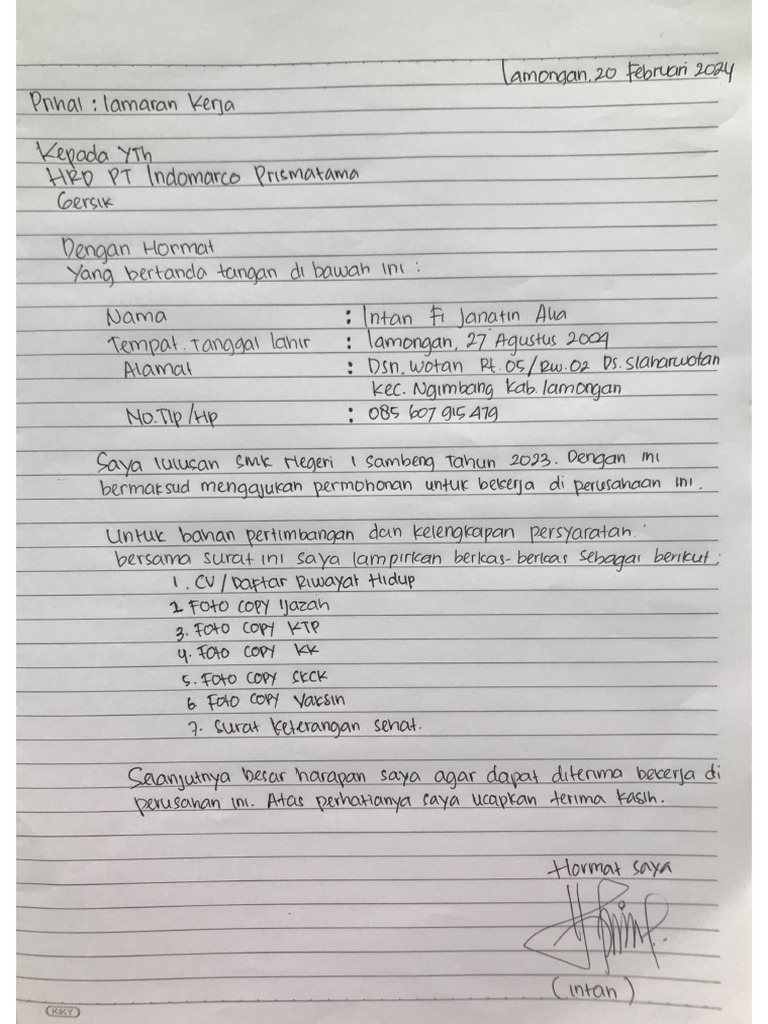 Lamongan, 20 Februari 2024
Prihal : lamaran Kerja
Kepada YTh
HRD PT Indomarco Prismatama
Gersik
Dengan Hormat
Yang bertanda tangan di bawah ini :
Nama : Intan Fi Janatin Alia
Tempat. Tanggal lahir : lamongan, 27 Agustus 2004
Alamat : Dsn. Wotan Rt. 05 / Rw. 02 Ds. Slaharwotan
Kec. Ngimbang Kab. lamongan
No. Tlp / Hp : 085 607 915 479
Saya lulusan SMK Negeri 1 Sambeng Tahun 2023. Dengan ini
bermaksud mengajukan permohonan untuk bekerja di perusahaan ini.
Untuk bahan pertimbangan dan kelengkapan persyaratan.
bersama surat ini saya lampirkan berkas-berkas sebagai berikut :
1. CV / Daftar Riwayat Hidup
2. FOTO COPY Ijazah
3. FOTO COPY KTP
4. FOTO COPY KK
5. FOTO COPY SKCK
6 FOTO COPY Vaksin
7. Surat Keterangan sehat.
Selanjutnya besar harapan saya agar dapat diterima bekerja di
perusahan ini. Atas perhatianya saya ucapkan terima kasih.
Hormat saya
(intan)
KKY